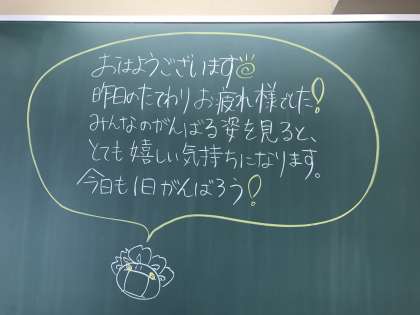 おはようございます
昨日のたてわりお疲れ様でした!
みんなのがんばる姿を見ると、
とても嬉しい気持ちになります。
今日も1日がんばろう!